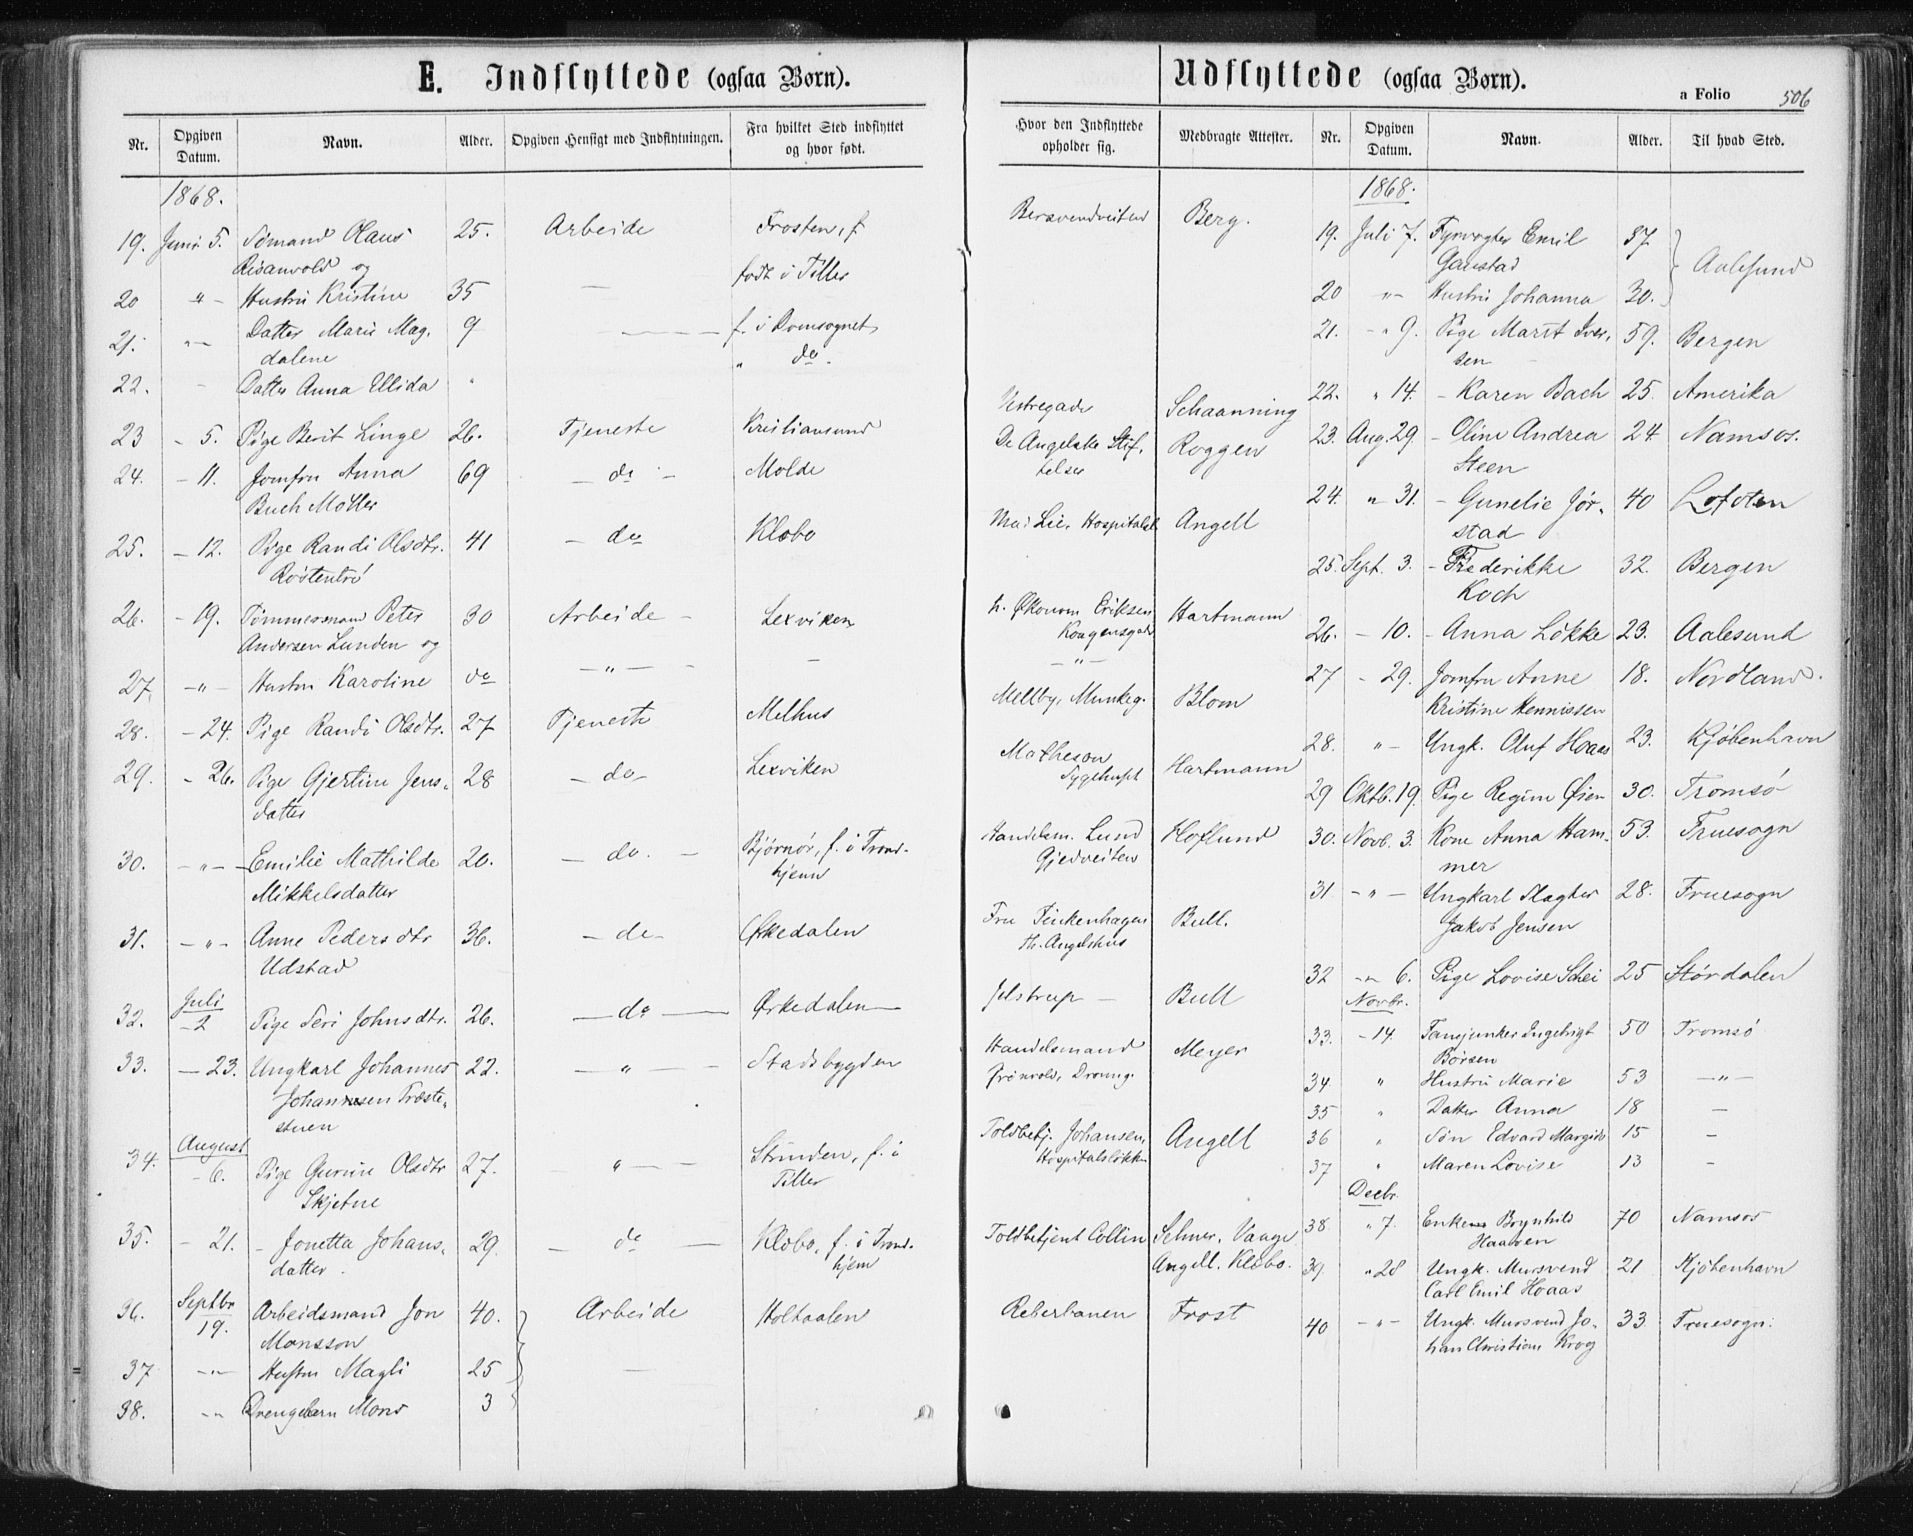 E. Indflyttede (ogsaa Børn).
Nr. Opgiven Datum. Navn. Alder. Opgiven Hensigt med Indflytningen. Fra hvilket Sted indflyttet og hvor født.
1868.
19. Juni 5. Sømand Olaus 25. Arbeide Frosten, f.
Risanvold og født i Tiller
20 " - Hustru Kristine 35 —
21. " - Datter Marie Mag- 9 — f. i Domsognet
dalene " do.
22. - Datter Anna Ellida "
23 - 5. Pige Berit Linge 26. Tjeneste Kristiansund
24. - 11. Jomfru Anna 69 - do - Molde
Buch Møller
25. - 12. Pige Randi Olsdtr. 41 - do Klæbo
26. - 19. Tømmermand Peter 30 Arbeide - Lexviken
Andersen Lunden og
27. - " - Hustru Karoline do - " - -
28. - 24. Pige Randi Olsdtr. 27 Tjeneste Melhus
29. - 26. Pige Gjertine Jens- 28 - do - Lexviken
datter
30. - " - Emilie Mathilde 20. - do. - Bjørnør, f. i Trond-
Mikkelsdatter hjem
31. - " - Anne Pedersdtr 36. - do - Ørkedalen
Udstad
Juli
32. - 2 Pige Seri Johnsdtr. 26. - do - Ørkedalen
33. - 23. Ungkarl Johannes 22. - " - Stadsbygden
Johannesen Træste-
stuen
August
34. - 6. Pige Gurine Olsdtr 27. " - Strinden, f. i
Skjetne Tiller
35. - 21. - Jonetta Johans- 29. - do - Klæbo, f. i Trond-
datter. hjem
Septbr
36. 19. Arbeidsmand Jon 40. Arbeide Holtaalen
Monsson
37 - " - Hustru Magli 25 —
38. " Drengebarn Mons 3
Udflyttede (ogsaa Børn).
a Folio 506
Hvor den Indflyttede opholder sig. Medbragte Attester. Nr. Opgiven Datum. Navn. Alder. Til hvad Sted.
Bersvendveiten Berg.
Vestregade Schaanning
De Angelske Stif- Roggen
telser
Hospitalsl. Angell
h. Økonom Eriksen Hartmann
Kongensgade
- " -
Mellby, Munkeg. Blom
Matheson Hartmann
Sygehuset
Handelsm. Lund Hoflund
Gjedveiten
Fru Finkenhagen Bull.
th. Angelshus
Jelstrup - Bull
Handelsmand Meyer
Grønvold, Dronng.
Toldbetj. Johansen, Angell
Hospitalsløkken
Toldbetjent Collin Selmer, Vaage
Angell. Klæbo.
Reberbanen Frost
1868.
19. Juli 7. Fyrvogter Emil 37 Aalesund
Gaustad
20 " - Hustru Johanna 30.
21. - " 9. Pige Marit Iver- 59. Bergen
sen
22. " 14. - Karen Bach 25. Amerika
23. Aug 29 - Oline Andrea 24 Namsos.
Steen
24. " 31. - Gunelie Jør- 40 Lofoten
stad
25. Sept. 3. - Frederikke 32. Bergen
Koch
26. - 10. - Anna Løkke 23. Aalesund
27 - 29. Jomfru Anne 18. Nordland.
Kristine Hennissen
28. " - Ungk. Oluf Hoaas 23. Kjøbenhavn
29 Oktb. 19. Pige Regine Øien 30. Tromsø
30. Novb. 3. Kone Anna Ham- 53. Fruesogn
mer
31 - " - Ungkarl Slagter 28. Fruesogn
Jakob Jensen
32 - " 6. Pige Lovise Schei 25 Størdalen
Novbr.
33. - 14. Fanejunker Ingebrigt 50 Tromsø
Børsen
34 " Hustru Marie 53 - " -
35 " Datter Anna 18 -
36 " Søn Edvard Margido 15 -
37 " Maren Lovise 13 -
Decbr
38. " 7. Enken Brynhild 70 Namsos
Haaven
39. " 28 Ungk. Mursvend 21 Kjøbenhavn
Carl Emil Hoaas
40 - " - Ungk. Mursvend Jo- 33 Fruesogn.
han Christian Krog